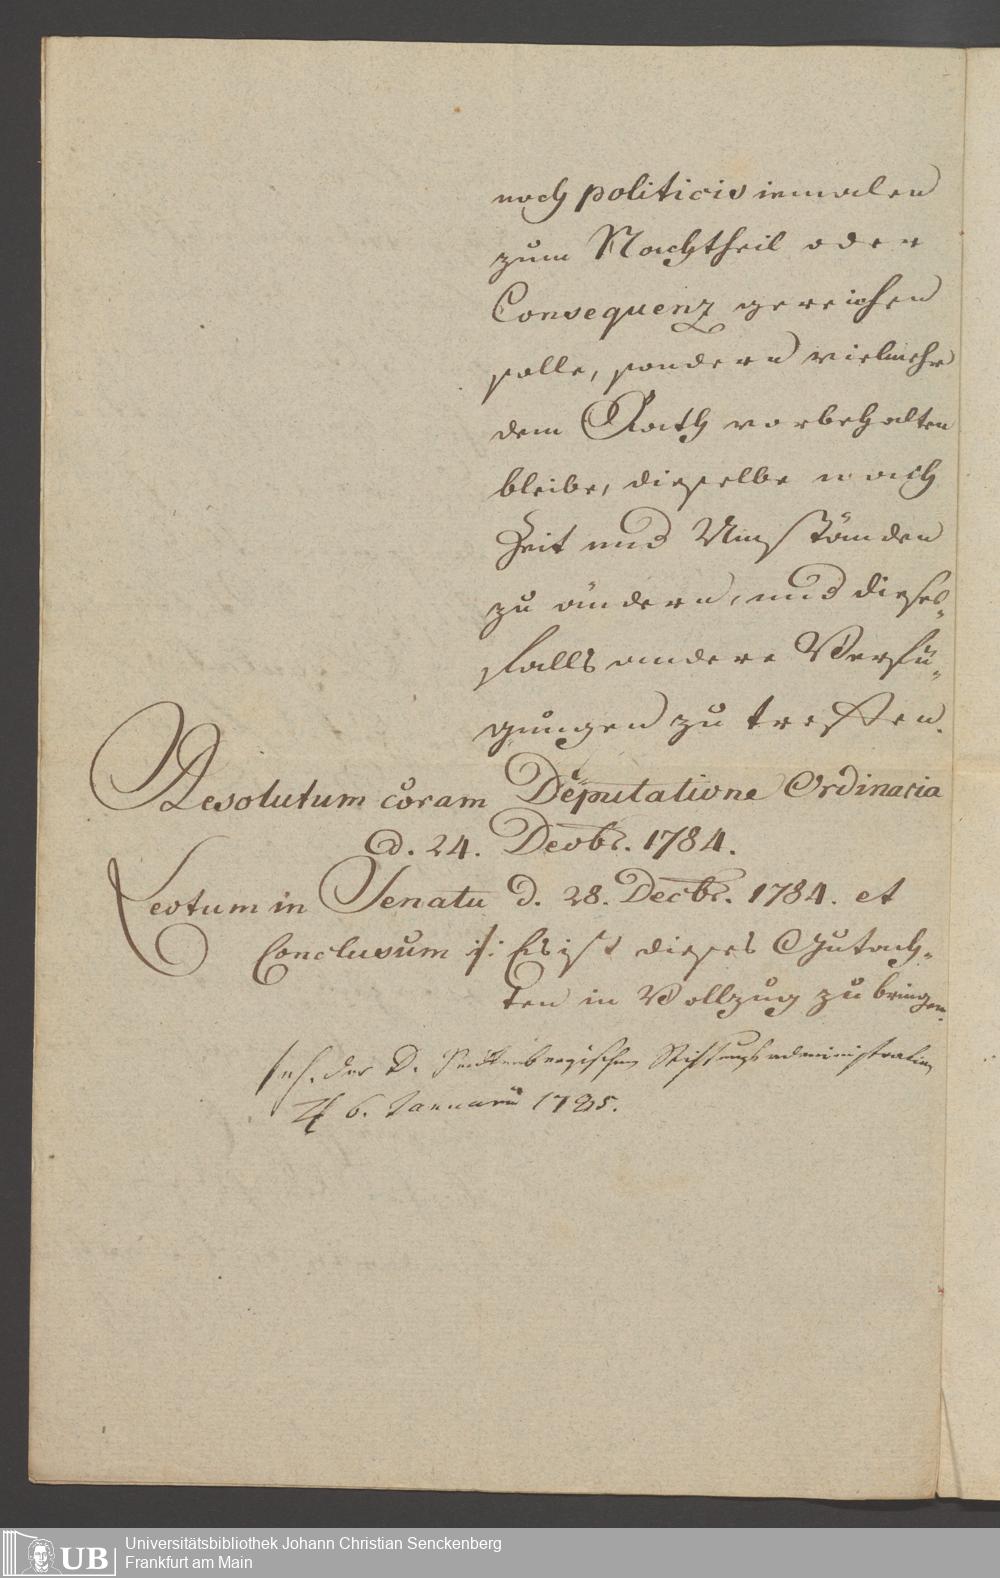 noch politicis iemalen
zum Nachtheil oder
Consequenz gereichen
solle, sondern vielmehr
dem Rath vorbehalten
bleibe, dieselbe nach
Zeit und Umständen
zu ändern, und dieses-
falls andere Verfü-
gungen zu treffen.
Resolutum coram Deputatione Ordinaria
d. 24. Decbr. 1784.
Lectum in Senatu d. 28. Decbr. 1784. et
Conclusum :/: Es ist dieses Gutach-
ten in Vollzug zu bringen.
der D. Senckenbergischen Stiftungs administration
6. Januarii 1785.
Universitätsbibliothek Johann Christian Senckenberg
Frankfurt am Main
UB